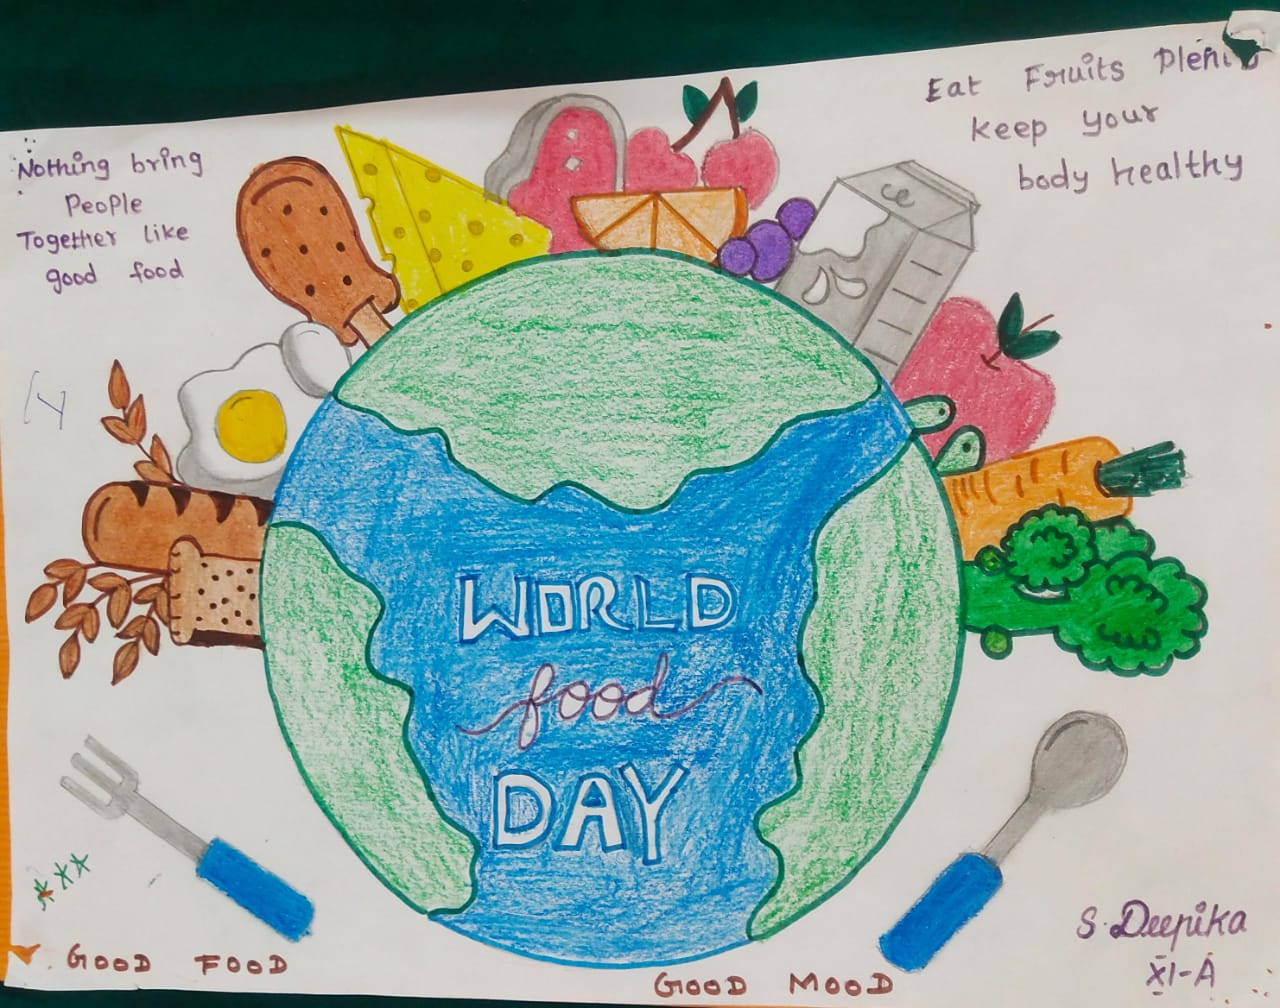 Nothing bring
People
Together like
good food
Eat Fruits
keep your
body healthy
WORLD
food
DAY
GOOD FOOD
GOOD MOOD
S. Deepika
XI-A